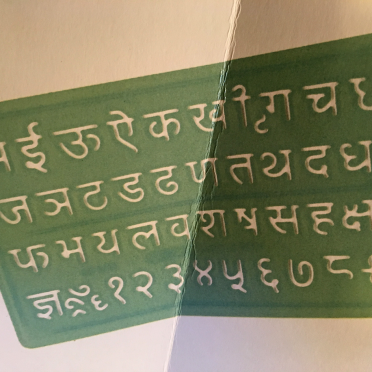 ई ऊ ऐ क ख ी ृ ग च
ज ञ ट ड ढ ण त थ द ध
फ भ य ल व श ष स ह क्ष
ज्ञ १ २ ३ ४ ५ ६ ७ ८